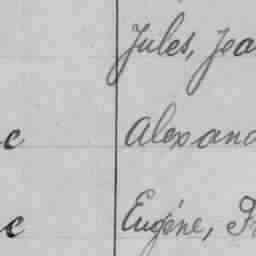 Jules, Jea
c Alexand
c Eugène, Fr